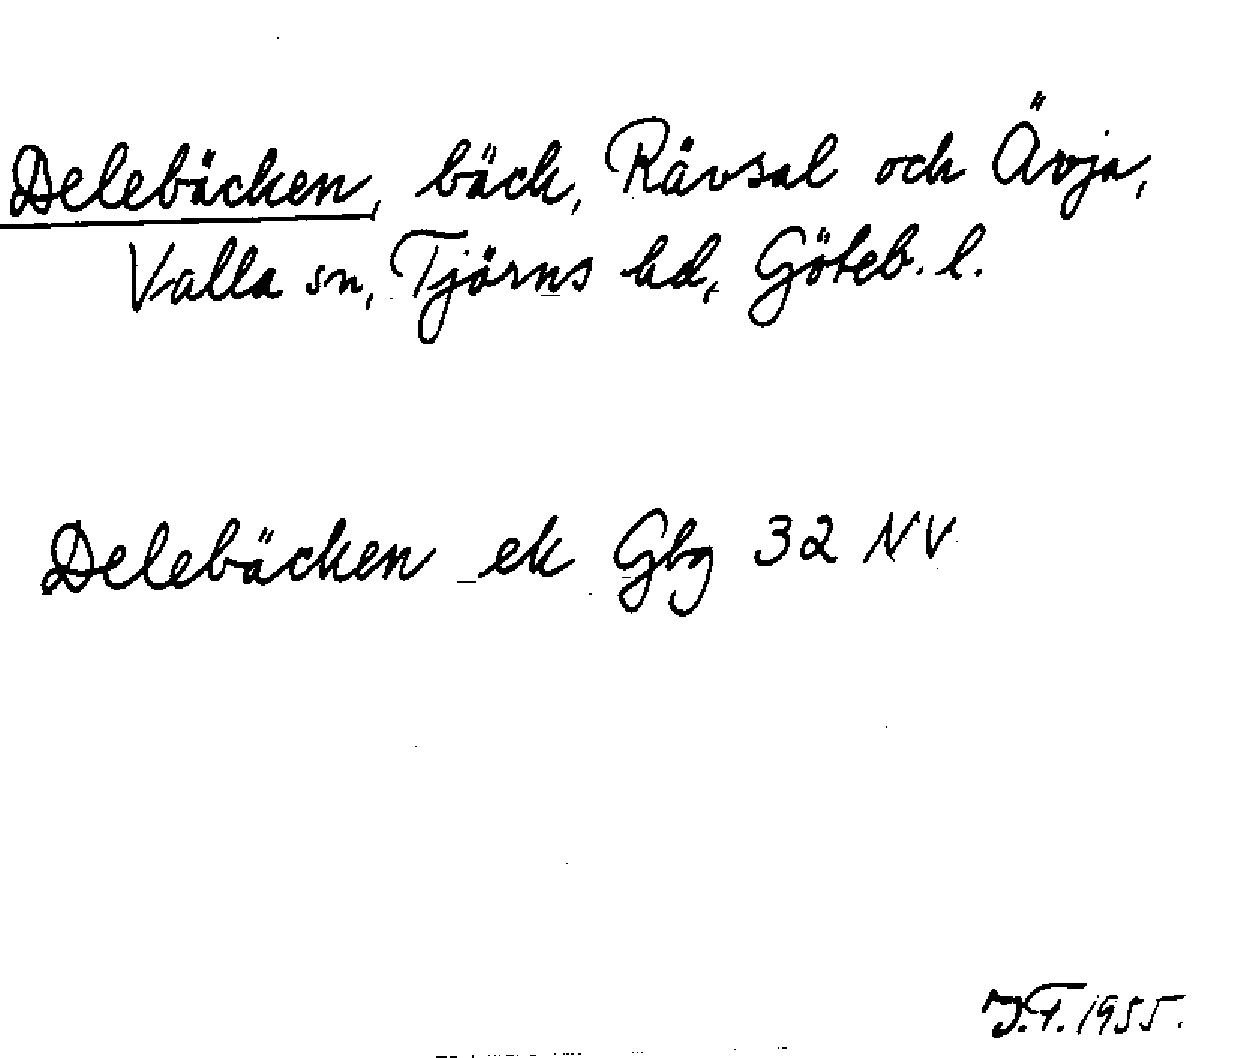 Delebäcken, bäck, Rävsal och Ävja,
Valla sn, Tjörns hd, Göteb. l.
Delebäcken ek Gbg 32 NV
J.F. 1955.